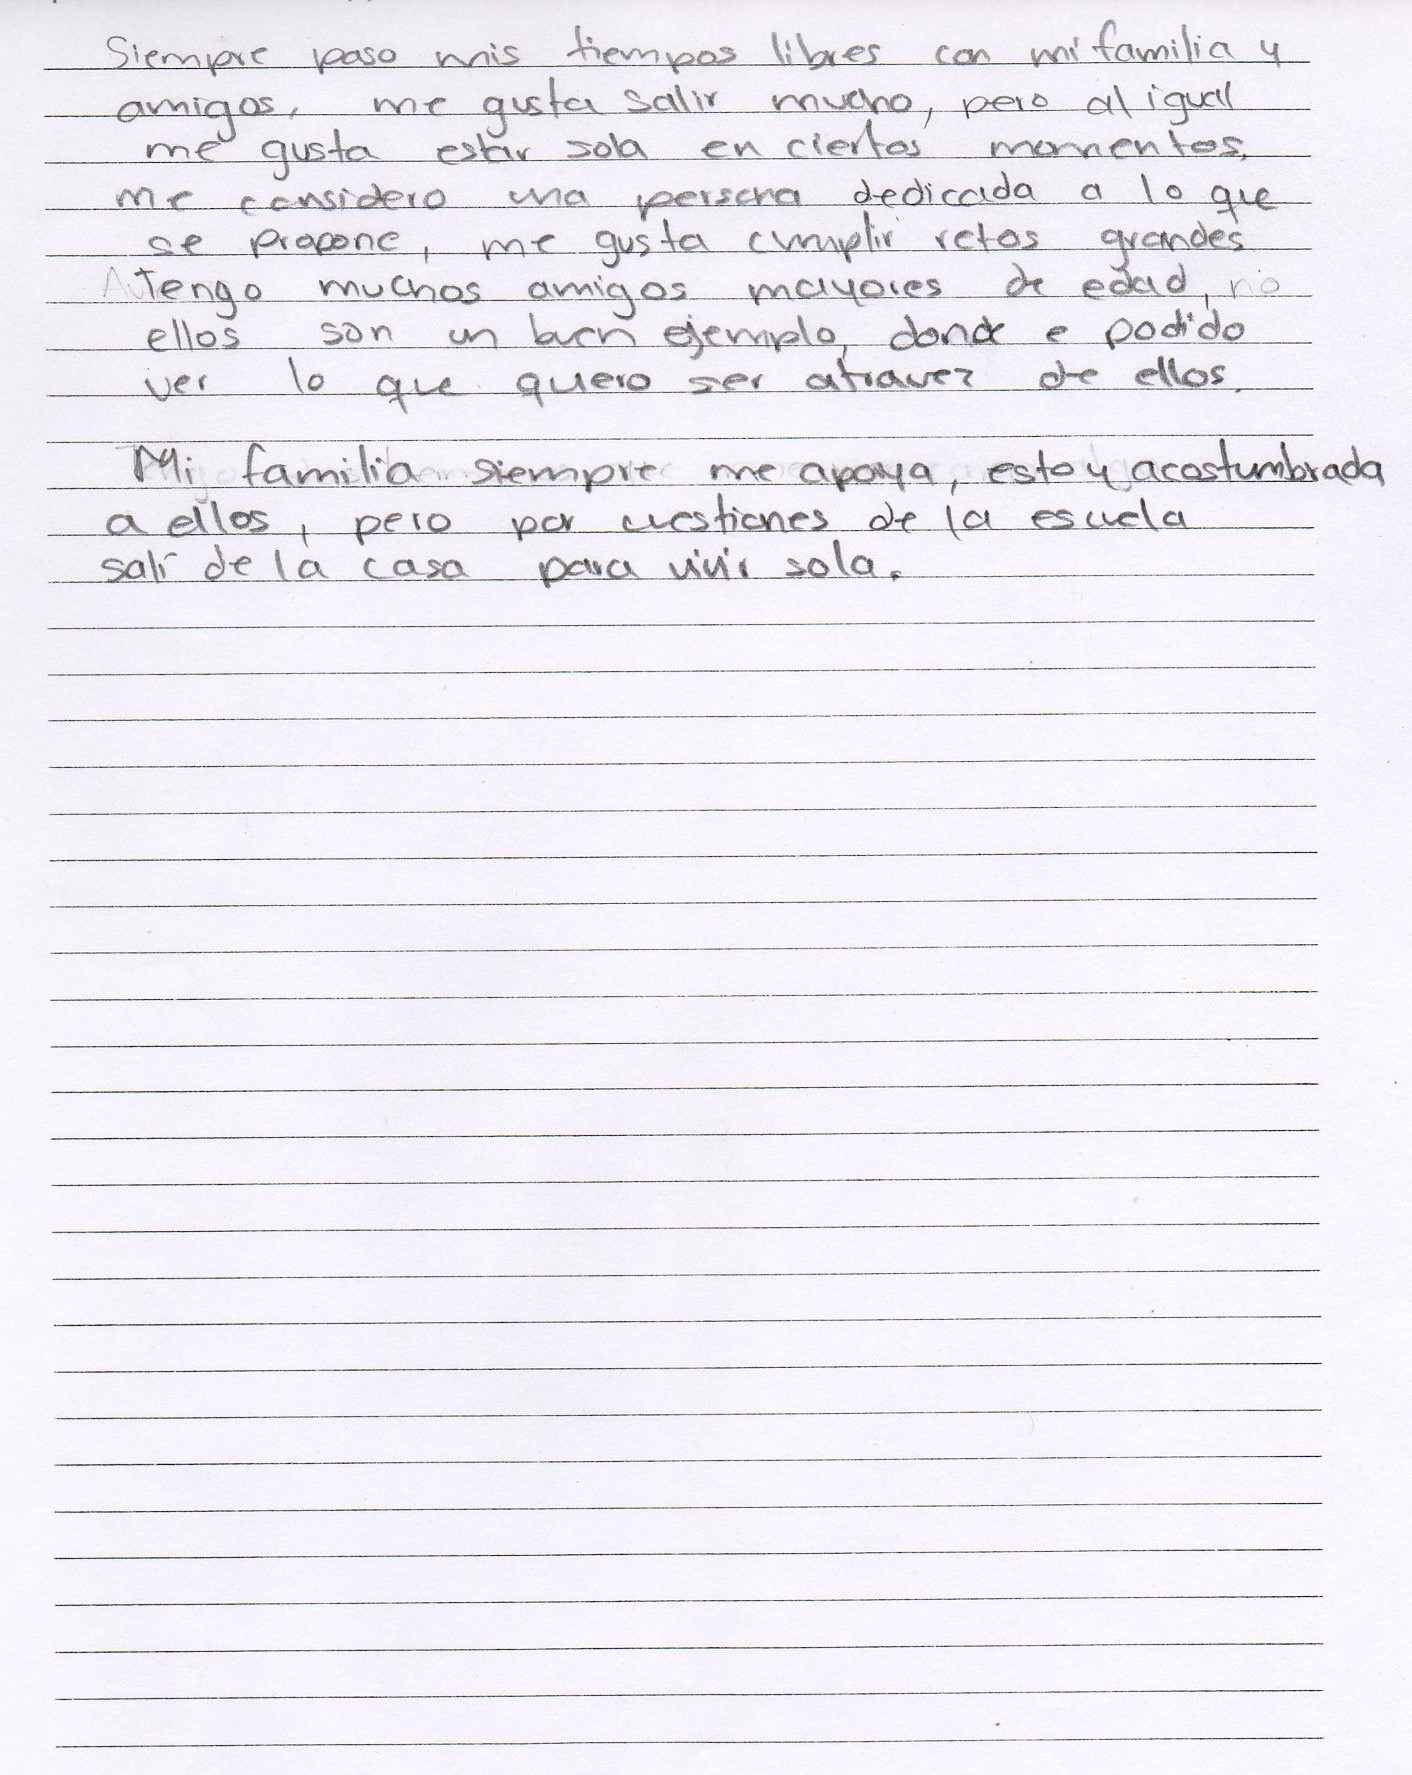 Siempre paso mis tiempos libres con mi familia y
amigos, me gusta salir mucho, pero al igual
me gusta estar sola en ciertos momentos.
me considero una persona dedicada a lo que
se propone, me gusta cumplir retos grandes
Tengo muchos amigos mayores de edad, no
ellos son un buen ejemplo, donde e podido
ver lo que quero ser atravez de ellos.
Mi familia siempre me apoya, estoy acostumbrada
a ellos, pero por cuestiones de la escuela
salí de la casa para vivir sola.